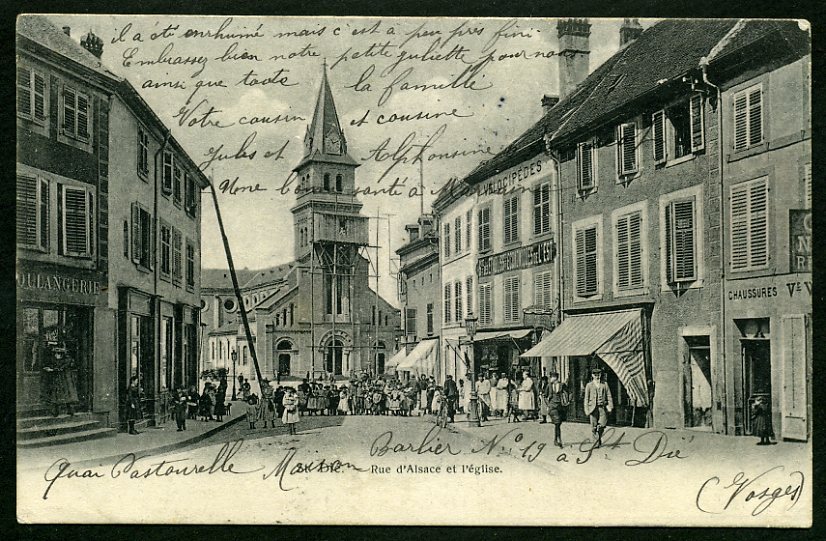 il a été enrhumé mais c'est a peu près fini
Embrassez bien notre petite guliette pour nous
ainsi que toute la famille
Votre cousin et cousine
Jules et Alphonsine
Une bonne santé a
VÉLOCIPÈDES
BOULANGERIE
CHAUSSURES Vve V
Quai Pastourelle Maison Barlier No 19 a St Dié
ST-DIÉ. - Rue d'Alsace et l'église.
(Vosges)